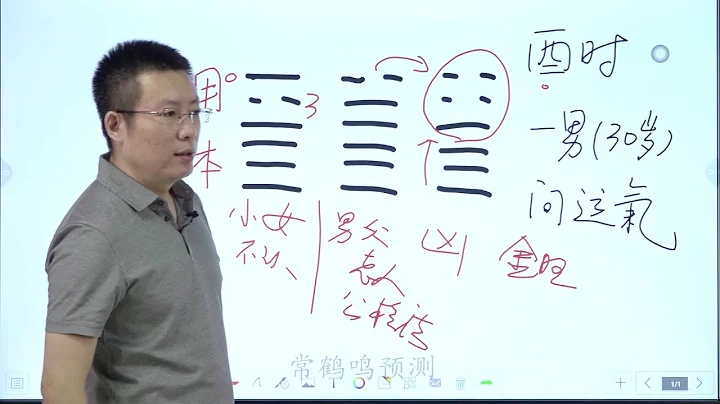 酉时
一男(30岁)
问运氣
用
3
本
小女
不认
男父
老人
凶
金旺
常鹤鸣预测
1/1